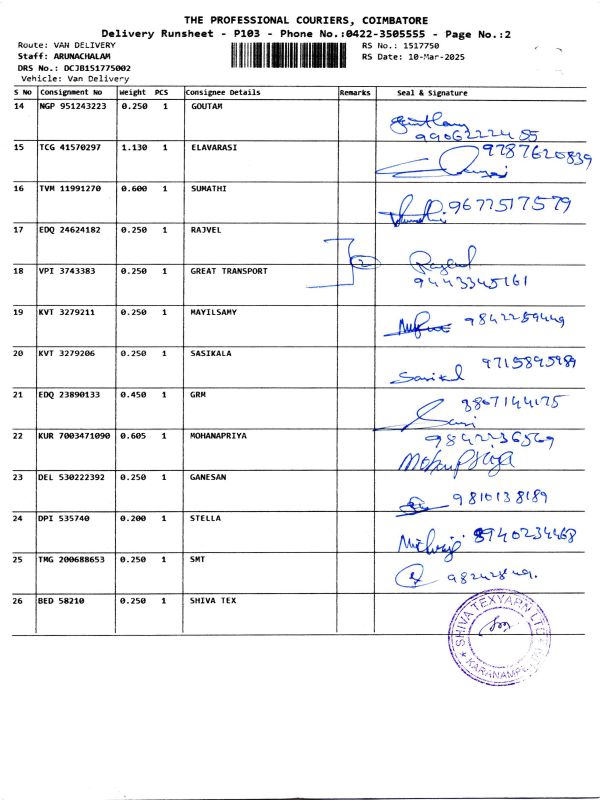 THE PROFESSIONAL COURIERS, COIMBATORE
Delivery Runsheet - P103 - Phone No.:0422-3505555 - Page No.:2
Route: VAN DELIVERY RS No.: 1517750
Staff: ARUNACHALAM RS Date: 10-Mar-2025
DRS No.: DCJB1517750002
Vehicle: Van Delivery
S No Consignment No Weight PCS Consignee Details Remarks Seal & Signature
14 NGP 951243223 0.250 1 GOUTAM
9906222485
15 TCG 41570297 1.130 1 ELAVARASI 9787620839
16 TVM 11991270 0.600 1 SUMATHI 9677517579
17 EDQ 24624182 0.250 1 RAJVEL
2
18 VPI 3743383 0.250 1 GREAT TRANSPORT 9443345161
19 KVT 3279211 0.250 1 MAYILSAMY 9842259449
20 KVT 3279206 0.250 1 SASIKALA 9715895989
Sasikal
21 EDQ 23890133 0.450 1 GRM 8807144175
22 KUR 7003471090 0.605 1 MOHANAPRIYA 9842236569
Mohanpriya
23 DEL 530222392 0.250 1 GANESAN 9810138189
24 DPI 535740 0.200 1 STELLA 8940234468
25 TMG 200688653 0.250 1 SMT
26 BED 58210 0.250 1 SHIVA TEX
SHIVA TEXYARN LTD
KARANAMPET